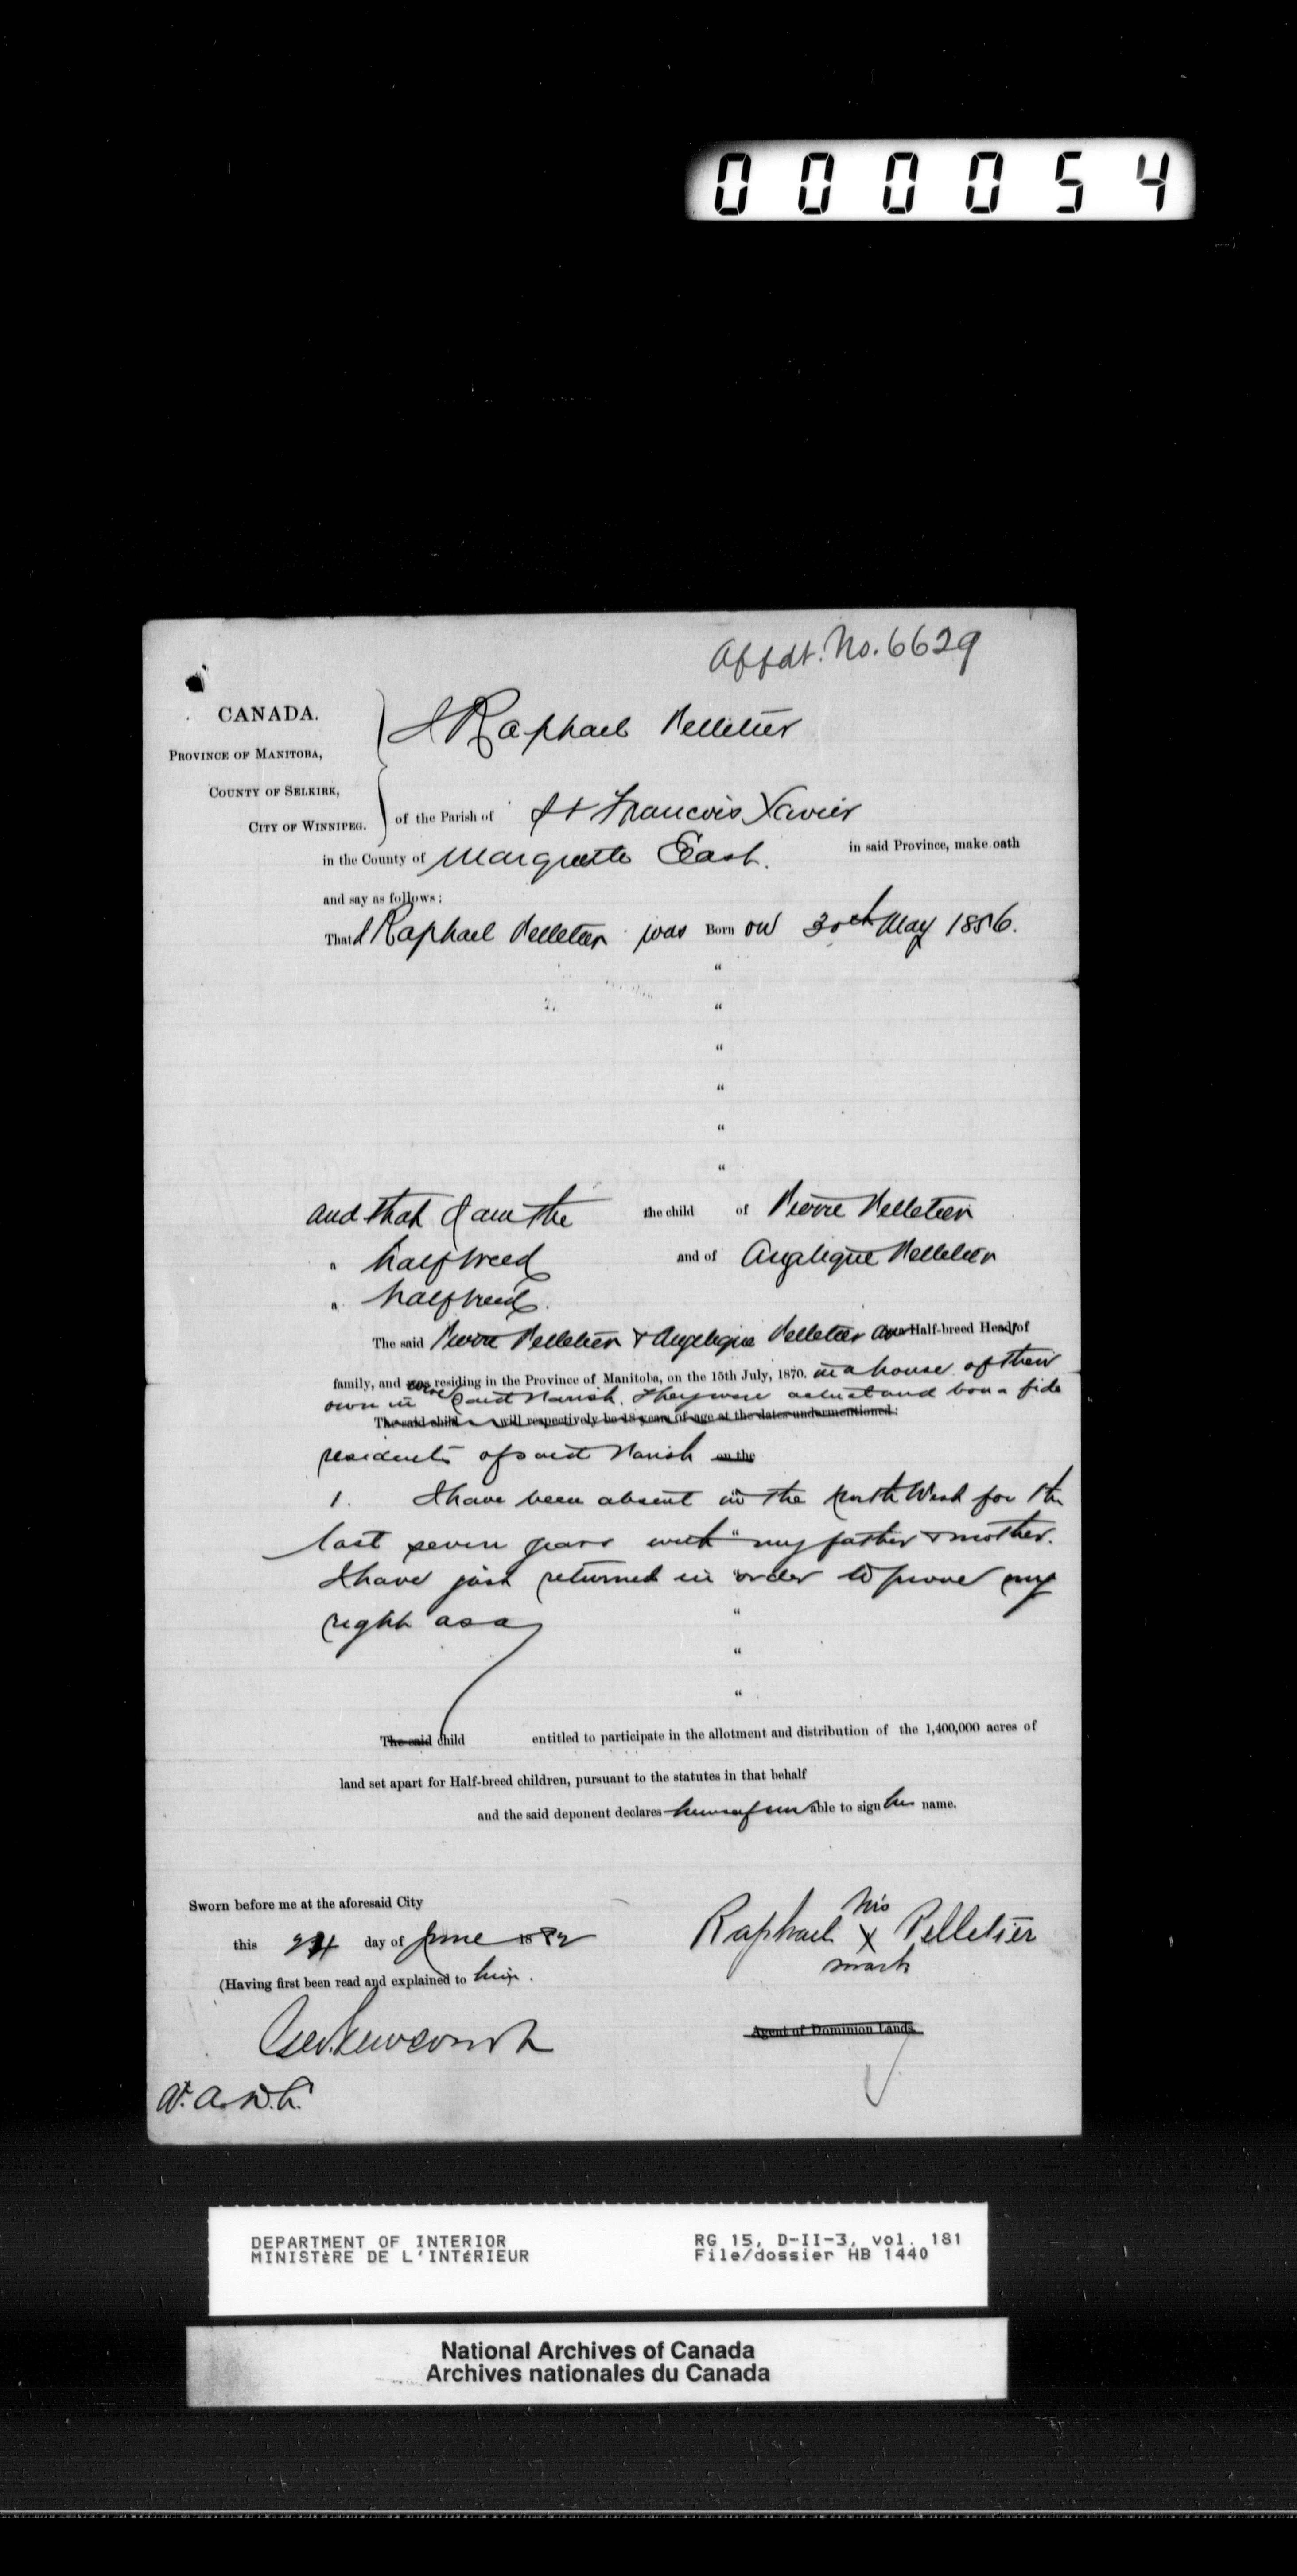 000054
Affdt. No. 6629
CANADA.
PROVINCE OF MANITOBA,
COUNTY OF SELKIRK,
CITY OF WINNIPEG.
I Raphael Pelletier
of the Parish of St Francois Xavier
in the County of Marquette East. in said Province, make oath
and say as follows:
That I Raphael Pelletier was Born on 30th May 1856.
"
"
"
"
"
"
and that I am the the child of Pierre Pelletier
a halfbreed and of Angelique Pelletier
a halfbreed.
The said Pierre Pelletier & Angelique Pelletier are Half-breed Heads of
family, and were residing in the Province of Manitoba, on the 15th July, 1870. in a house of their
own in said Parish. They were actual and bona fide
The said child will respectively be 18 years of age at the dates undermentioned:
residents of said Parish on the
1. I have been absent in the North West for the
last seven years with " my father & mother.
I have just returned in " order to prove my
right as a "
"
"
The said child entitled to participate in the allotment and distribution of the 1,400,000 acres of
land set apart for Half-breed children, pursuant to the statutes in that behalf
and the said deponent declares himself unable to sign his name.
Sworn before me at the aforesaid City
this 24 day of June 1882
(Having first been read and explained to him.
Raphael his X mark Pelletier
Agent of Dominion Lands.
DEPARTMENT OF INTERIOR
MINISTÈRE DE L'INTÉRIEUR
RG 15, D-II-3, vol. 181
File/dossier HB 1440
National Archives of Canada
Archives nationales du Canada